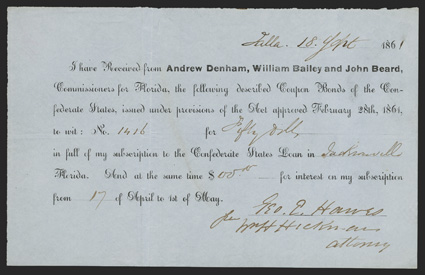 Talla. 18. Sept 1861
I have Received from Andrew Denham, William Bailey and John Beard,
Commissioners for Florida, the following described Coupon Bonds of the Con-
federate States, issued under provisions of the Act approved February 28th, 1861,
to wit: No. 1416 for Fifty Dolls
in full of my subscription to the Confederate States Loan in Jacksonville
Florida. And at the same time $00 for interest on my subscription
from 17 of April to 1st of May.
Geo. E. Hawes
Hickman
attorney